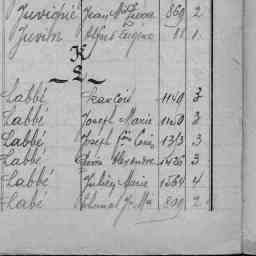 Juvigné Jean Mie Pierre 869 2
Juvin Alfred Eugène 88 1
K
L
Labbé François 1140 3
Labbé Joseph Marie 1150 3
Labbé Joseph 1313 3
Labbé Alexandre 1426 3
Labbé Julien Marie 1564 4
Labé 809 2